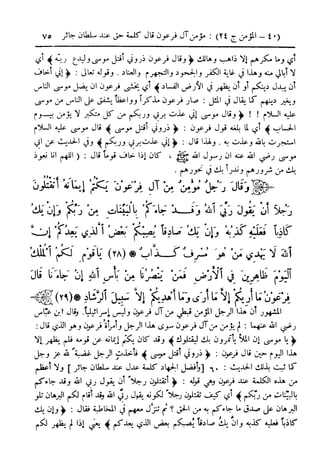 (٤٠ – المؤمن ج ٢٤) : مؤمن آل فرعون قال كلمة حق عند سلطان جائر ٧٥
أي وما مكرهم إلا ذاهب وهالك ﴿ وقال فرعون ذروني أقتل موسى وليدع ربه ﴾ أي
لا أبالي منه وهذا في غاية الكفر والجحود والتجهرم والعناد . وقوله تعالى : ﴿ إني أخاف
أن يبدل دينكم أو أن يظهر في الأرض الفساد ﴾ أي يخشى فرعون ان يضل موسى الناس
ويغير دينهم كما يقال في المثل : صار فرعون مذكراً وواعظاً يشفق على الناس من موسى
عليه السلام ! ! ﴿ وقال موسى إني عذت بربي وربكم من كل متكبر لا يؤمن بيـــوم
الحساب ﴾ أي لما بلغه قول فرعون : ﴿ ذروني أقتل موسى ﴾ قال موسى عليه السلام
استجرت بالله وعذت به . ولهذا قال : ﴿ إني عذت بربي وربكم ﴾ وفي الحديث عن أبي
موسى رضي الله عنه ان رسول الله ﷺ ، كان إذا خاف قوماً قال : ( اللهم انا نعوذ
بك من شرورهم وندرأ بك في نحورهم .
وَقَالَ رَجُلٌ مُؤْمِنٌ مِنْ آلِ فِرْعَوْنَ يَكْتُمُ إِيمَانَهُ أَتَقْتُلُونَ
رَجُلًا أَنْ يَقُولَ رَبِّيَ اللهُ وَقَدْ جَاءَكُمْ بِالْبَيِّنَاتِ مِنْ رَبِّكُمْ وَإِنْ يَكُ
كَاذِبًا فَعَلَيْهِ كَذِبُهُ وَإِنْ يَكُ صَادِقًا يُصِبْكُمْ بَعْضُ الَّذِي يَعِدُكُمْ إِنَّ
اللهَ لَا يَهْدِي مَنْ هُوَ مُسْرِفٌ كَذَّابٌ * (٢٨) يَاقَوْمِ لَكُمُ الْمُلْكُ
الْيَوْمَ ظَاهِرِينَ فِي الْأَرْضِ فَمَنْ يَنْصُرُنَا مِنْ بَأْسِ اللهِ إِنْ جَاءَنَا قَالَ
فِرْعَوْنُ مَا أُرِيكُمْ إِلَّا مَا أَرَى وَمَا أَهْدِيكُمْ إِلَّا سَبِيلَ الرَّشَادِ *(٢٩)
المشهور أن هذا الرجل المؤمن قبطي من آل فرعون وليس إسرائيلياً. وقال ابن عباس
رضي الله عنهما : لم يؤمن من آل فرعون سوى هذا الرجل وامرأة فرعون وهو الذي قال :
﴿ يا موسى إن الملأ يأتمرون بك ليقتلوك ﴾ وقد كان يكتم إيمانه عن قومه فلم يظهر إلا
هذا اليوم حين قال فرعون : ﴿ ذروني أقتل موسى ﴾ فأخذت الرجل غضبة لله عز وجل
كما ثبت بذلك الحديث : ٦٠ [وأفضل الجهاد كلمة عدل عند سلطان جائر ] ولا أعظم
من هذه الكلمة عند فرعون وهي قوله : ﴿ أتقتلون رجلاً أن يقول ربي الله وقد جاءكم
بالبينات من ربكم ﴾ أي كيف تقتلون رجلاً لكونه يقول ربي الله وقد أقام لكم البرهان تلو
البرهان على صدق ما جاءكم به من الحق ؟ ثم تنزل معهم في المخاطبة فقال : ﴿ وإن يك
كاذباً فعليه كذبه وإن يك صادقاً يصبكم بعض الذي يعدكم ﴾ يعني إذا لم يظهر لكم